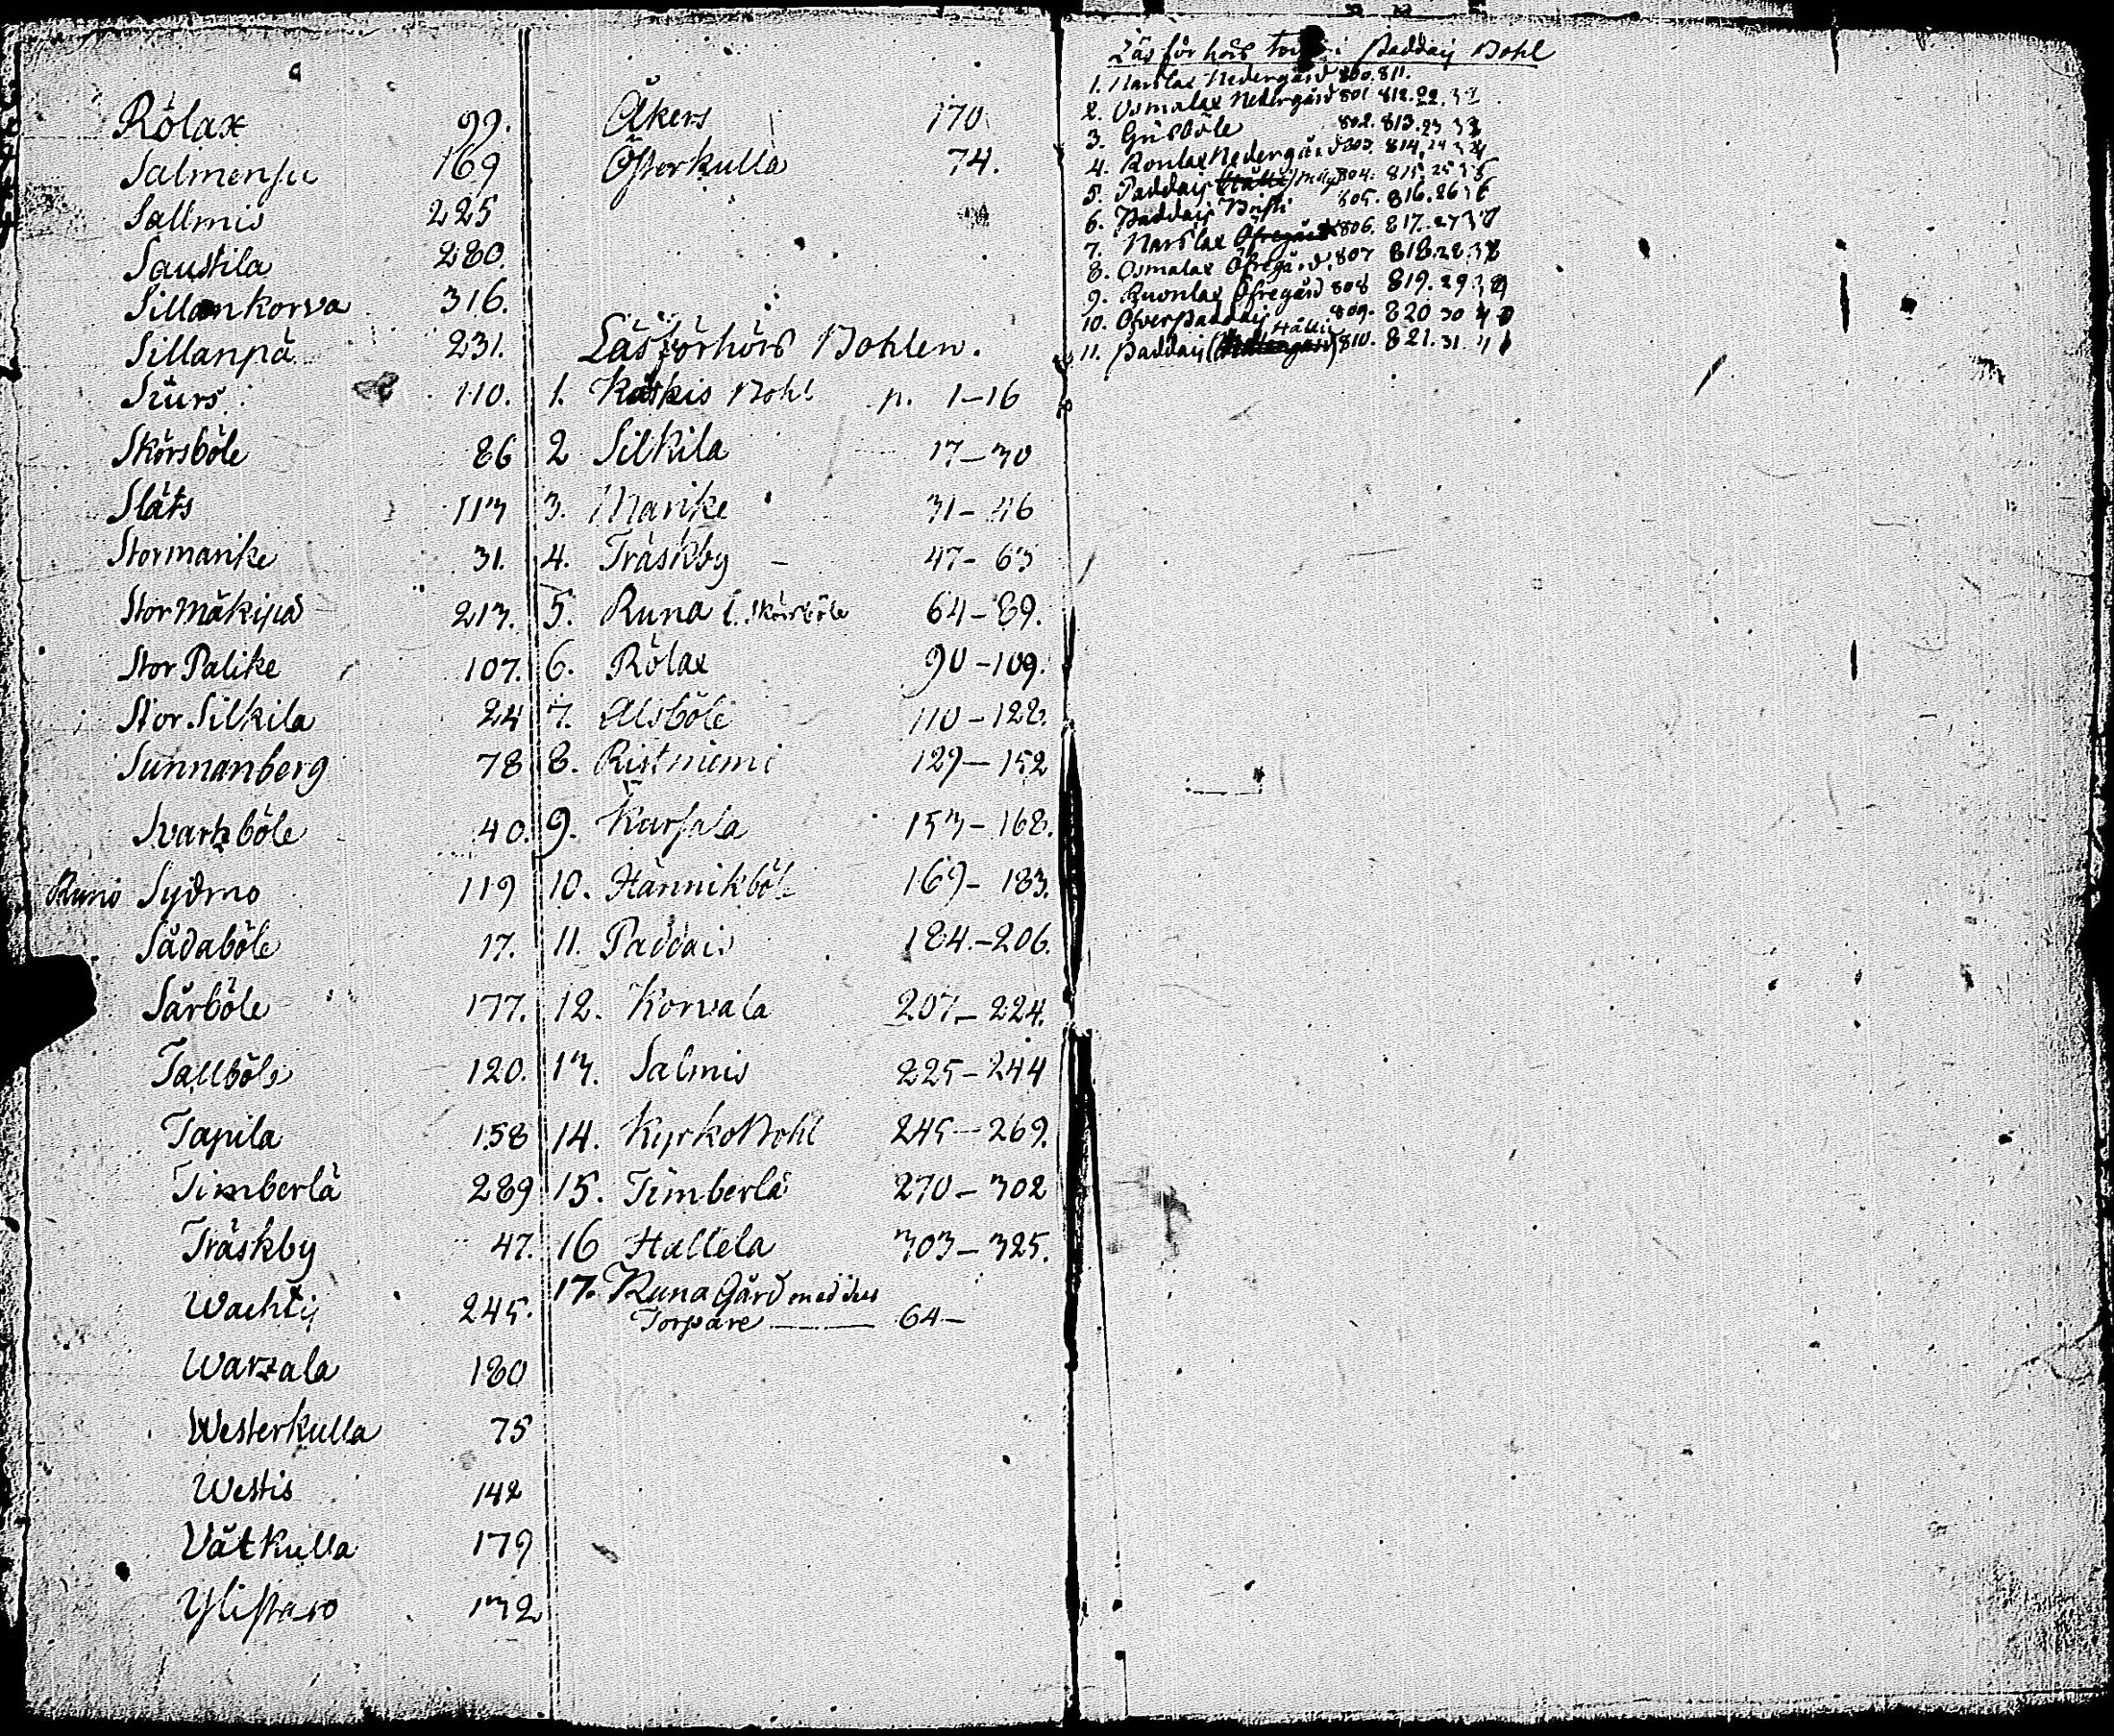 Rölax 99.
Salmensu 169
Sallmis 225
Saustila 280.
Sillankorva 316.
Sillanpä 231.
Siurs 110.
Skörsböle 86
Släts 113
Stormarike 31.
Stor Mäkipä 213.
Stor Palike 107.
Stor Silkila 24
Sunnanberg 78
Svartzböle 40.
Runio Sydmo 119
Sådaböle 17.
Särböle 177.
Tallböle 120.
Tapila 158
Timberlä 289
Träskby 47.
Wachtij 245.
Warzala 180
Westerkulla 75
Westis 142
Vätkulla 179
Ylistaro 132
Åkers 170
Österkulla 74.
Läsförhörs Bohlen.
1. Koskis Bohl p. 1-16
2 Silkila 17-30
3. Marike 31-46
4. Träskby - 47-63
5. Runa l. Skörsböle 64-89.
6. Rölax 90-109.
7. Alsböle 110-128.
8. Ristniemi 129-152
9. Karsala 153-168.
10. Hännikböle 169-183.
11. Paddais 184.-206.
12. Korvala 207-224.
13. Salmis 225-244
14. KyrkoBohl 245-269.
15. Timberlä 270-302
16 Hallela 303-325.
17. Runa Gård med dess
Torpare 64-
Läs för hörs i Paddaij Bohl
1. Narslax Nedergård 800. 811.
2. Osmalax Nedergård 801 812. 22. 32
3. Grisböle 802. 813. 23 33
4. Ronlax Nedergård 803 814. 24 34
5. Paddaij 804. 815. 25 35
6. Paddaij 805. 816. 26 36
7. Narslax Öfregård 806. 817. 27 37
8. Osmalax Öfregård. 807 818. 28. 38
9. Ruonlax Öfregård 808 819. 29 39
10. Öfverpaddaij 809. 820 30 40
11. Paddaij Hällis 810. 821. 31. 41